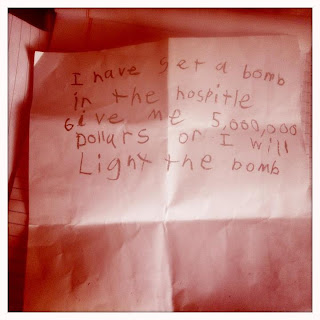 I have set a bomb
in the hospitle
Give me 5,000,000
Dollars or I will
Light the bomb